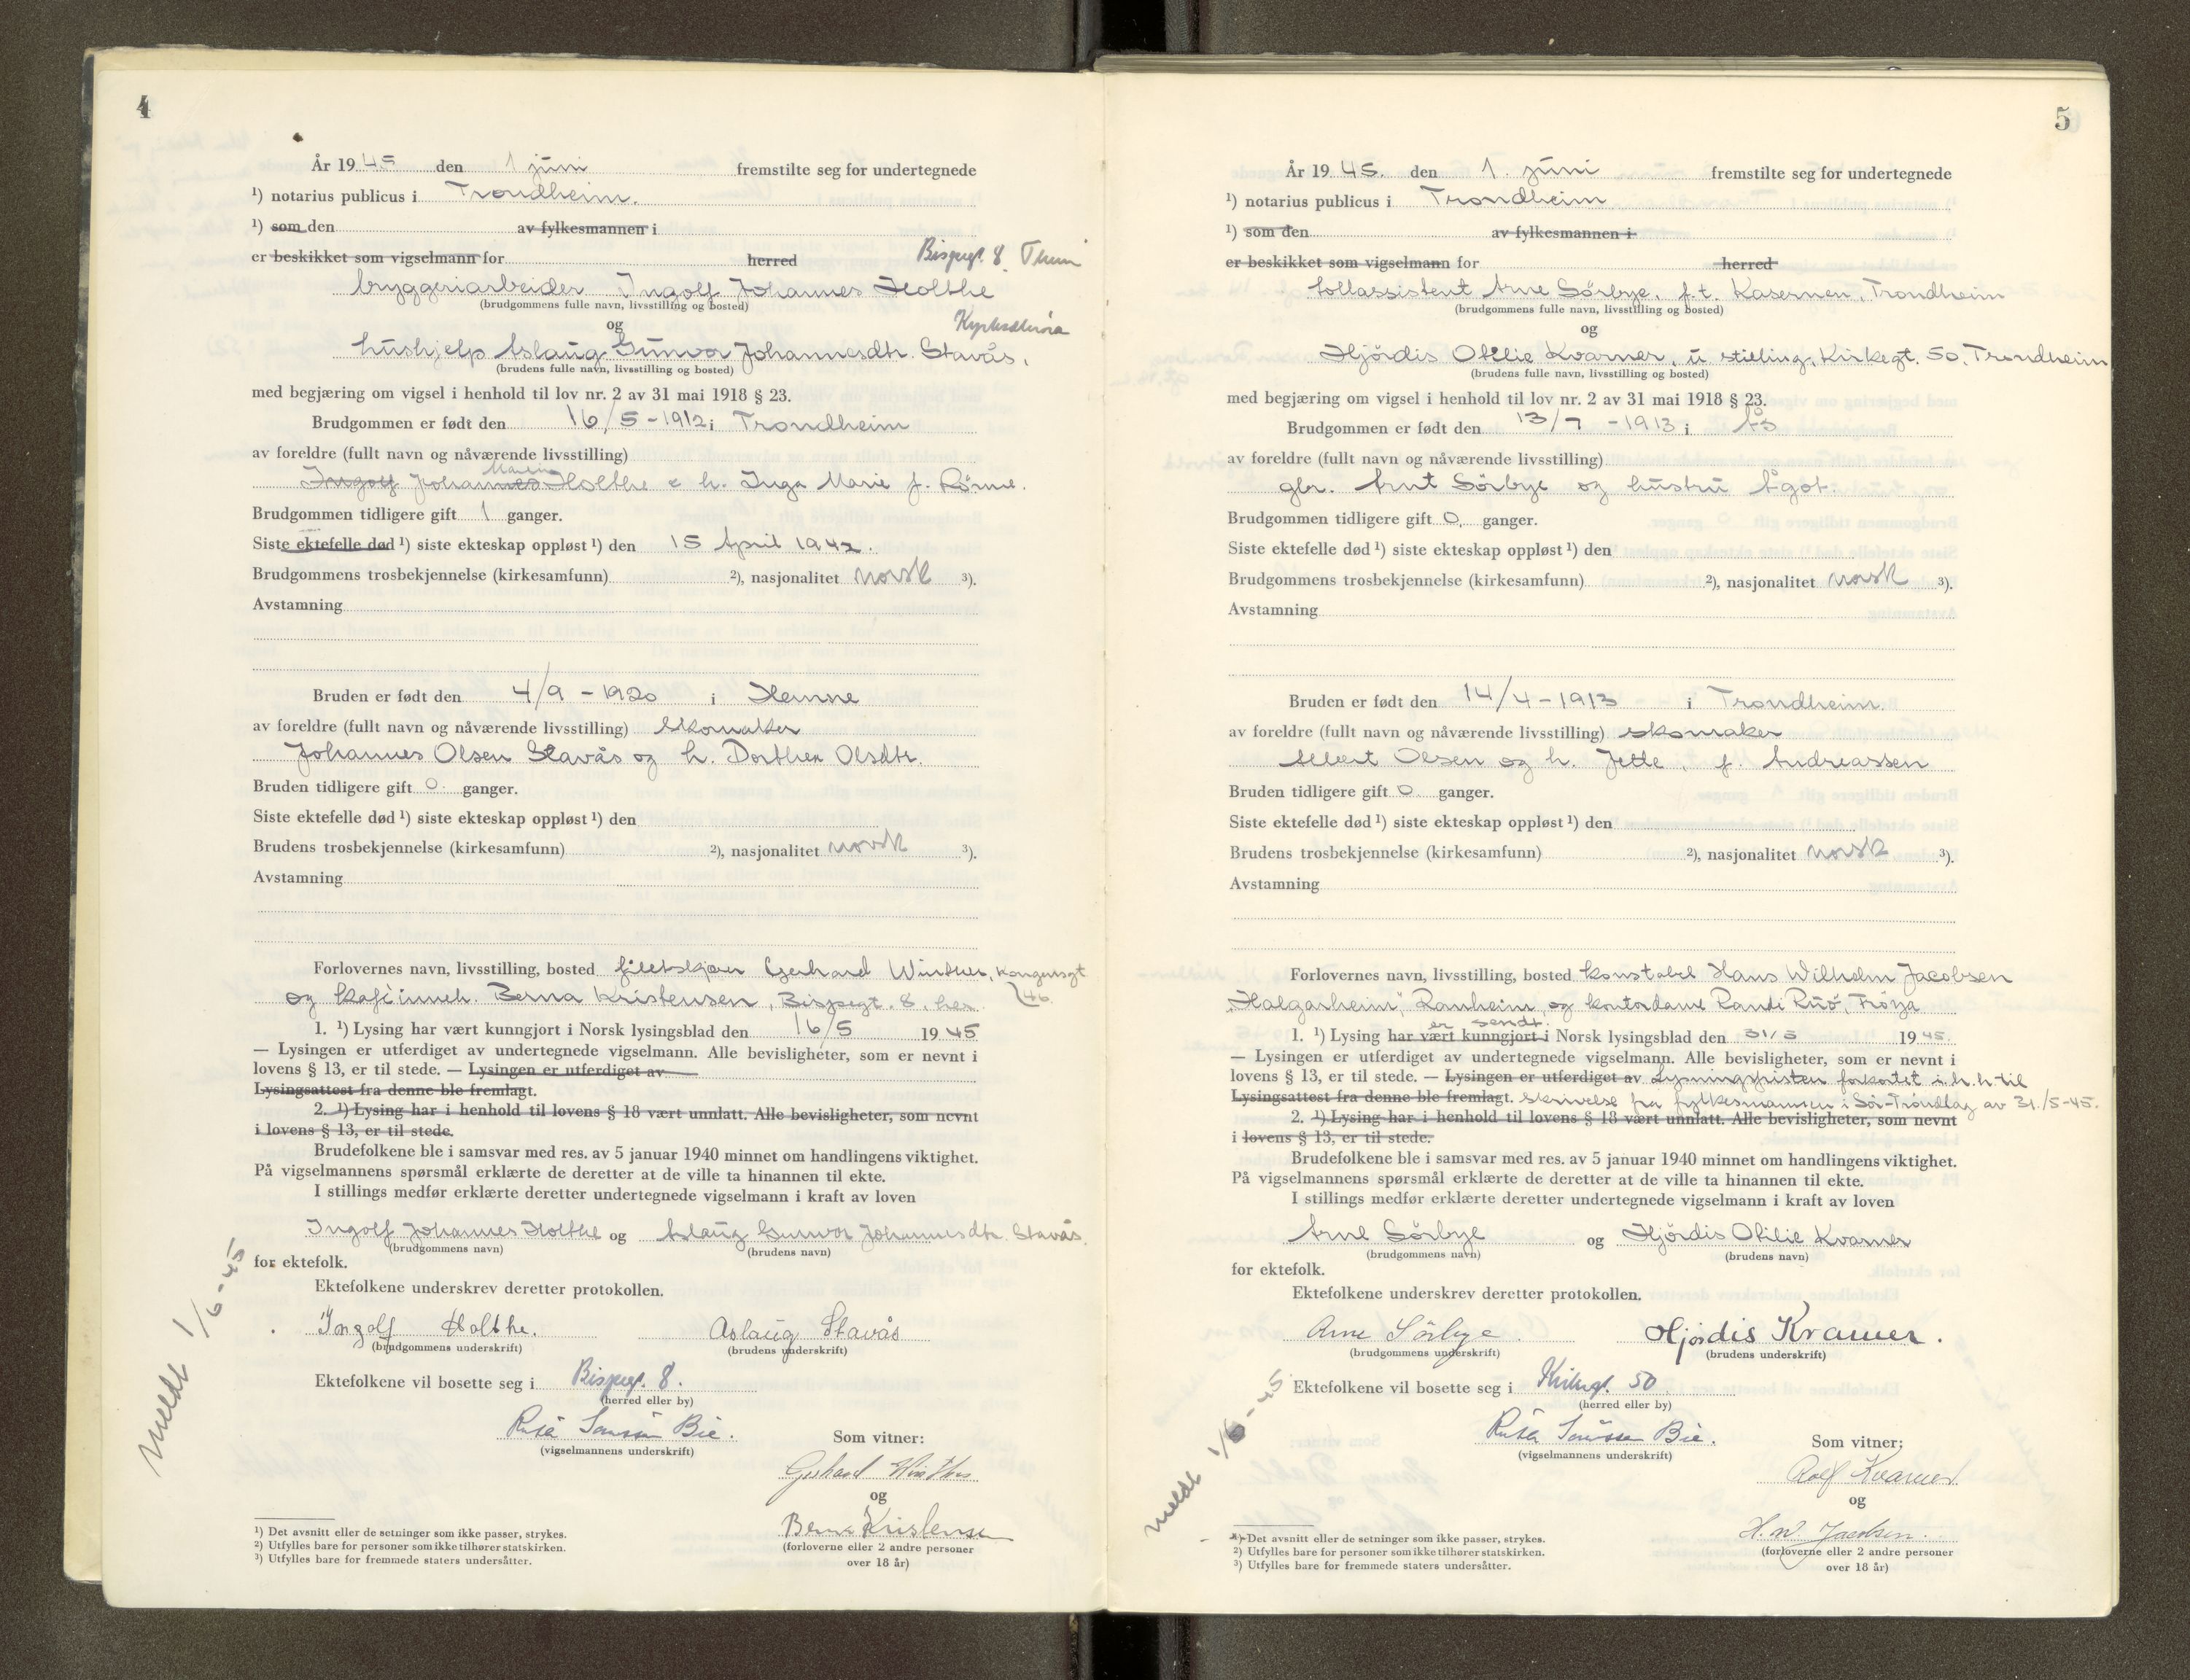 4
År 1945 den 1 juni fremstilte seg for undertegnede
¹) notarius publicus i Trondheim.
¹) som den av fylkesmannen i
er beskikket som vigselmann for herred Bispegt. 8. Thm
bryggeriarbeider Ingolf Johannes Holthe
(brudgommens fulle navn, livsstilling og bosted)
og
Kyrksæterøra
hushjelp Aslaug Gunvor Johannesdtr. Stavås,
(brudens fulle navn, livsstilling og bosted)
med begjæring om vigsel i henhold til lov nr. 2 av 31 mai 1918 § 23.
Brudgommen er født den 16/5-1912 i Trondheim
av foreldre (fullt navn og nåværende livsstilling)
Martin
Ingolf Johannes Holthe & h. Inga Marie f.
Brudgommen tidligere gift 1 ganger.
Siste ektefelle død ¹) siste ekteskap oppløst ¹) den 15 April 1942.
Brudgommens trosbekjennelse (kirkesamfunn) ²), nasjonalitet norsk ³).
Avstamning
Bruden er født den 4/9-1920 i Hemne
av foreldre (fullt navn og nåværende livsstilling) Skomaker
Johannes Olsen Stavås og h. Dorthea Olsdtr.
Bruden tidligere gift 0 ganger.
Siste ektefelle død ¹) siste ekteskap oppløst ¹) den
Brudens trosbekjennelse (kirkesamfunn) ²), nasjonalitet norsk ³).
Avstamning
Forlovernes navn, livsstilling, bosted filetskjærer Gerhard Winther, Kongensgt
og Kaféinneh. Berna Kristensen, Bispegt. 8, her 46
1. ¹) Lysing har vært kunngjort i Norsk lysingsblad den 16/5 1945
— Lysingen er utferdiget av undertegnede vigselmann. Alle bevisligheter, som er nevnt i
lovens § 13, er til stede. — Lysingen er utferdiget av
Lysingsattest fra denne ble fremlagt.
2. ¹) Lysing har i henhold til lovens § 18 vært unnlatt. Alle bevisligheter, som nevnt
i lovens § 13, er til stede.
Brudefolkene ble i samsvar med res. av 5 januar 1940 minnet om handlingens viktighet.
På vigselmannens spørsmål erklærte de deretter at de ville ta hinannen til ekte.
I stillings medfør erklærte deretter undertegnede vigselmann i kraft av loven
Ingolf Johannes Holthe og Aslaug Gunvor Johannesdtr. Stavås
(brudgommens navn) (brudens navn)
for ektefolk.
Ektefolkene underskrev deretter protokollen.
Ingolf Holthe. Aslaug Stavås
(brudgommens underskrift) (brudens underskrift)
Ektefolkene vil bosette seg i Bispegt. 8.
(herred eller by)
Bie.
(vigselmannens underskrift)
Som vitner:
Gerhard Winther
og
Berna Kristensen
(forloverne eller 2 andre personer
over 18 år)
¹) Det avsnitt eller de setninger som ikke passer, strykes.
²) Utfylles bare for personer som ikke tilhører statskirken.
³) Utfylles bare for fremmede staters undersåtter.
meldt 1/6-45
5
År 1945. den 1. juni fremstilte seg for undertegnede
¹) notarius publicus i Trondheim
¹) som den av fylkesmannen i
er beskikket som vigselmann for herred
tollassistent Arne Sörbye, f.t. Kasernen, Trondheim
(brudgommens fulle navn, livsstilling og bosted)
og
Hjördis Otilie Kvarner, u stilling, Kirkegt. 50, Trondheim
(brudens fulle navn, livsstilling og bosted)
med begjæring om vigsel i henhold til lov nr. 2 av 31 mai 1918 § 23.
Brudgommen er født den 13/7-1913 i Ås
av foreldre (fullt navn og nåværende livsstilling)
gbr. Arnt Sörbye og hustru Ågot.
Brudgommen tidligere gift 0. ganger.
Siste ektefelle død ¹) siste ekteskap oppløst ¹) den
Brudgommens trosbekjennelse (kirkesamfunn) ²), nasjonalitet norsk ³).
Avstamning
Bruden er født den 14/4-1913 i Trondheim.
av foreldre (fullt navn og nåværende livsstilling) skomaker
Albert Olsen og h. Jette, f. Andreassen
Bruden tidligere gift 0 ganger.
Siste ektefelle død ¹) siste ekteskap oppløst ¹) den
Brudens trosbekjennelse (kirkesamfunn) ²), nasjonalitet norsk ³).
Avstamning
Forlovernes navn, livsstilling, bosted konstabel Hans Wilhelm Jacobsen
"Halgarheim", Ranheim, og kontordame Randi Ruö, Tröya
er sendt
1. ¹) Lysing har vært kunngjort i Norsk lysingsblad den 31/5 1945.
— Lysingen er utferdiget av undertegnede vigselmann. Alle bevisligheter, som er nevnt i
lovens § 13, er til stede. — Lysingen er utferdiget av Lysningsfristen forkortet i h.h. til
Lysingsattest fra denne ble fremlagt. skrivelse fra fylkesmannen i Sör-Tröndlag av 31./5-45.
2. ¹) Lysing har i henhold til lovens § 18 vært unnlatt. Alle bevisligheter, som nevnt
i lovens § 13, er til stede.
Brudefolkene ble i samsvar med res. av 5 januar 1940 minnet om handlingens viktighet.
På vigselmannens spørsmål erklærte de deretter at de ville ta hinannen til ekte.
I stillings medfør erklærte deretter undertegnede vigselmann i kraft av loven
Arne Sörbye og Hjördis Otilie Kvarner
(brudgommens navn) (brudens navn)
for ektefolk.
Ektefolkene underskrev deretter protokollen.
Arne Sörbye. Hjördis Kvarner.
(brudgommens underskrift) (brudens underskrift)
Ektefolkene vil bosette seg i Kirkegt. 50
(herred eller by)
Bie.
(vigselmannens underskrift)
Som vitner:
Rolf Kvarner
og
H. W. Jacobsen.
(forloverne eller 2 andre personer
over 18 år)
¹) Det avsnitt eller de setninger som ikke passer, strykes.
²) Utfylles bare for personer som ikke tilhører statskirken.
³) Utfylles bare for fremmede staters undersåtter.
meldt 1/6-45